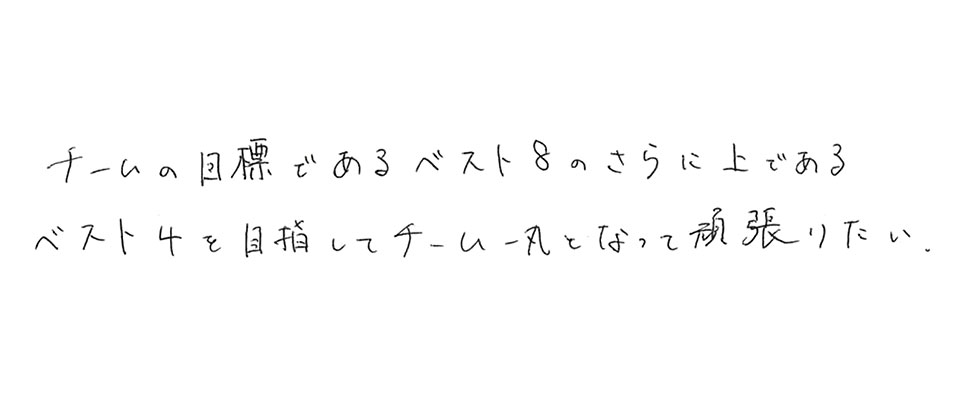 チームの目標であるベスト8のさらに上である
ベスト4を目指してチーム一丸となって頑張りたい.